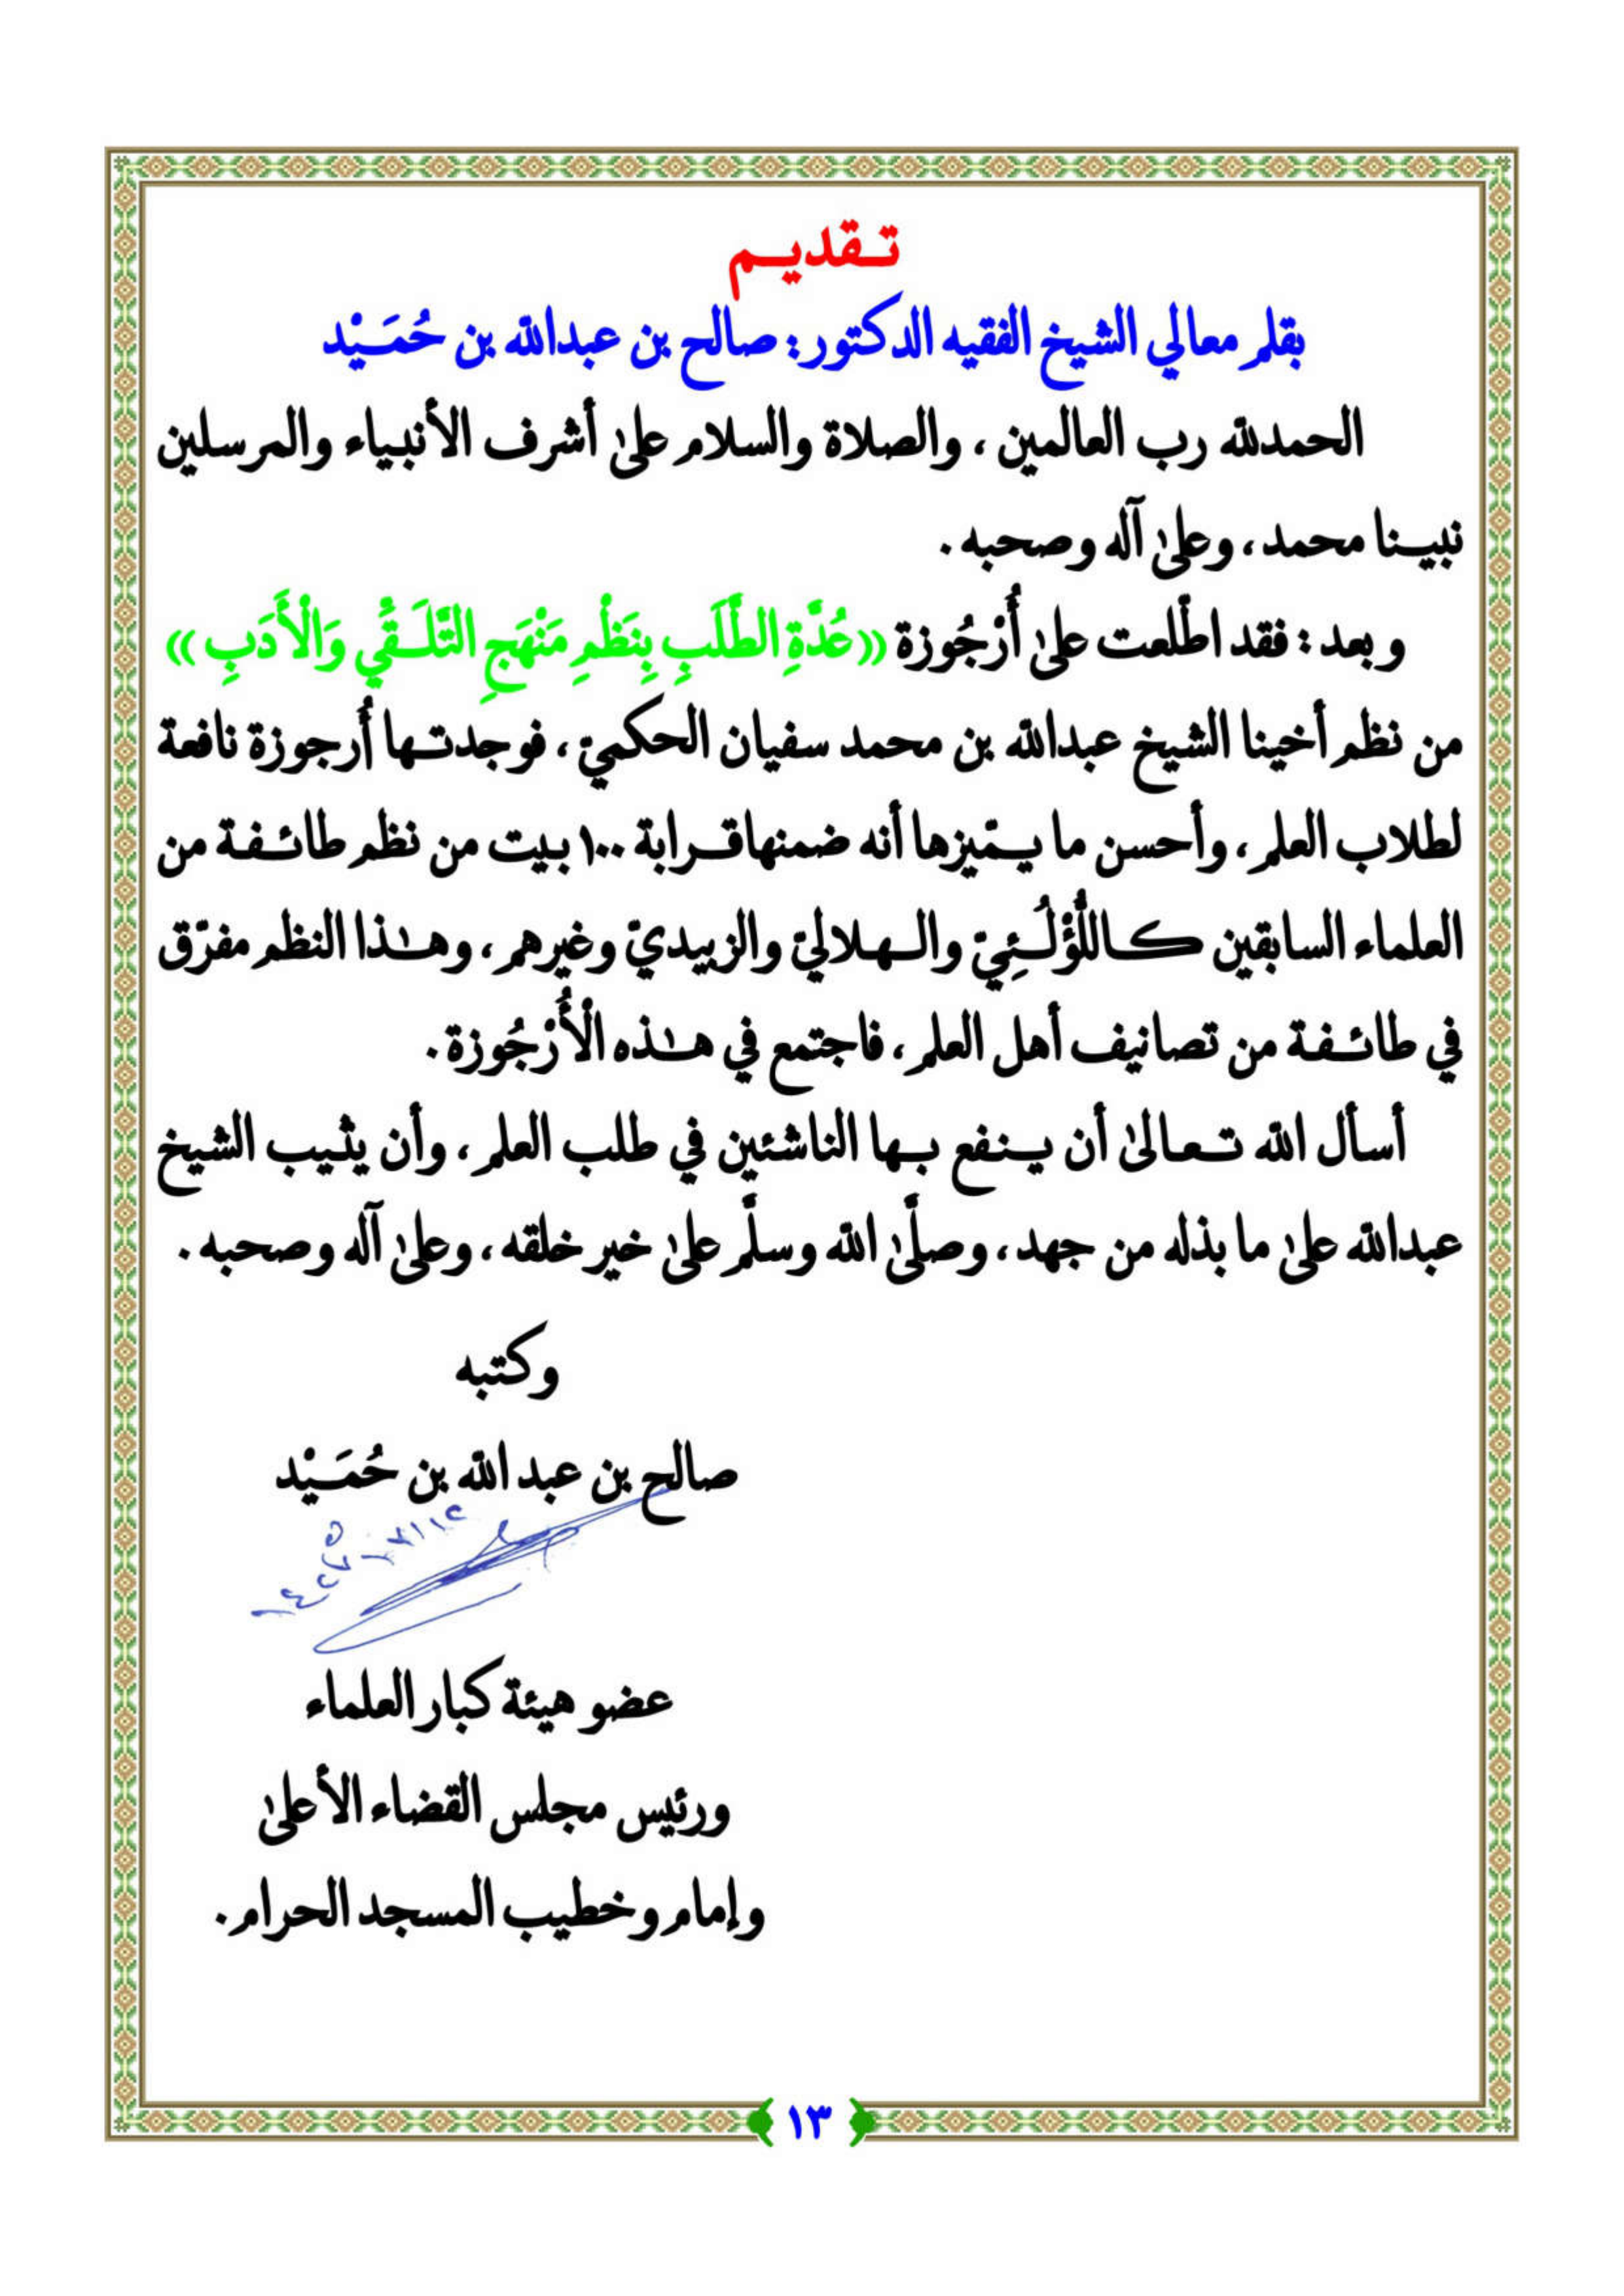 تـقديـم
بقلم معالي الشيخ الفقيه الدكتور: صالح بن عبدالله بن حُمَـيْد
الحمدلله رب العالمين ، والصلاة والسلام على أشرف الأنبياء والمرسلين
نبيـنا محمد ، وعلى آله وصحبه .
وبعد : فقد اطّلعت على أُرْجُوزة ((عُدَّةِ الطَّلَبِ بِنَظْمِ مَنْهَجِ التَّلَـقِّي وَالْأَدَبِ))
من نظم أخينا الشيخ عبدالله بن محمد سفيان الحكميّ ، فوجدتـها أُرجوزة نافعة
لطلاب العلم ، وأحسن ما يـميّزها أنه ضمنها قـرابة ١٠٠ بيت من نظم طائـفة من
العلماء السابقين كـاللُّؤْلُـئِيّ والـهلاليّ والزبيديّ وغيرهم ، وهـٰذا النظم مفرّق
في طائـفة من تصانيف أهل العلم ، فاجتمع في هـٰذه الْأُرْجُوزة .
أسأل الله تـعـالىٰ أن يـنفع بـها الناشئين في طلب العلم ، وأن يثيب الشيخ
عبدالله علىٰ ما بذله من جهد ، وصلَّىٰ الله وسلَّم علىٰ خير خلقه ، وعلىٰ آله وصحبه .
وكتبه
صالح بن عبد الله بن حُمَـيْد
عضو هيئة كبار العلماء
ورئيس مجلس القضاء الأعلىٰ
وإمام وخطيب المسجد الحرام .
١٣